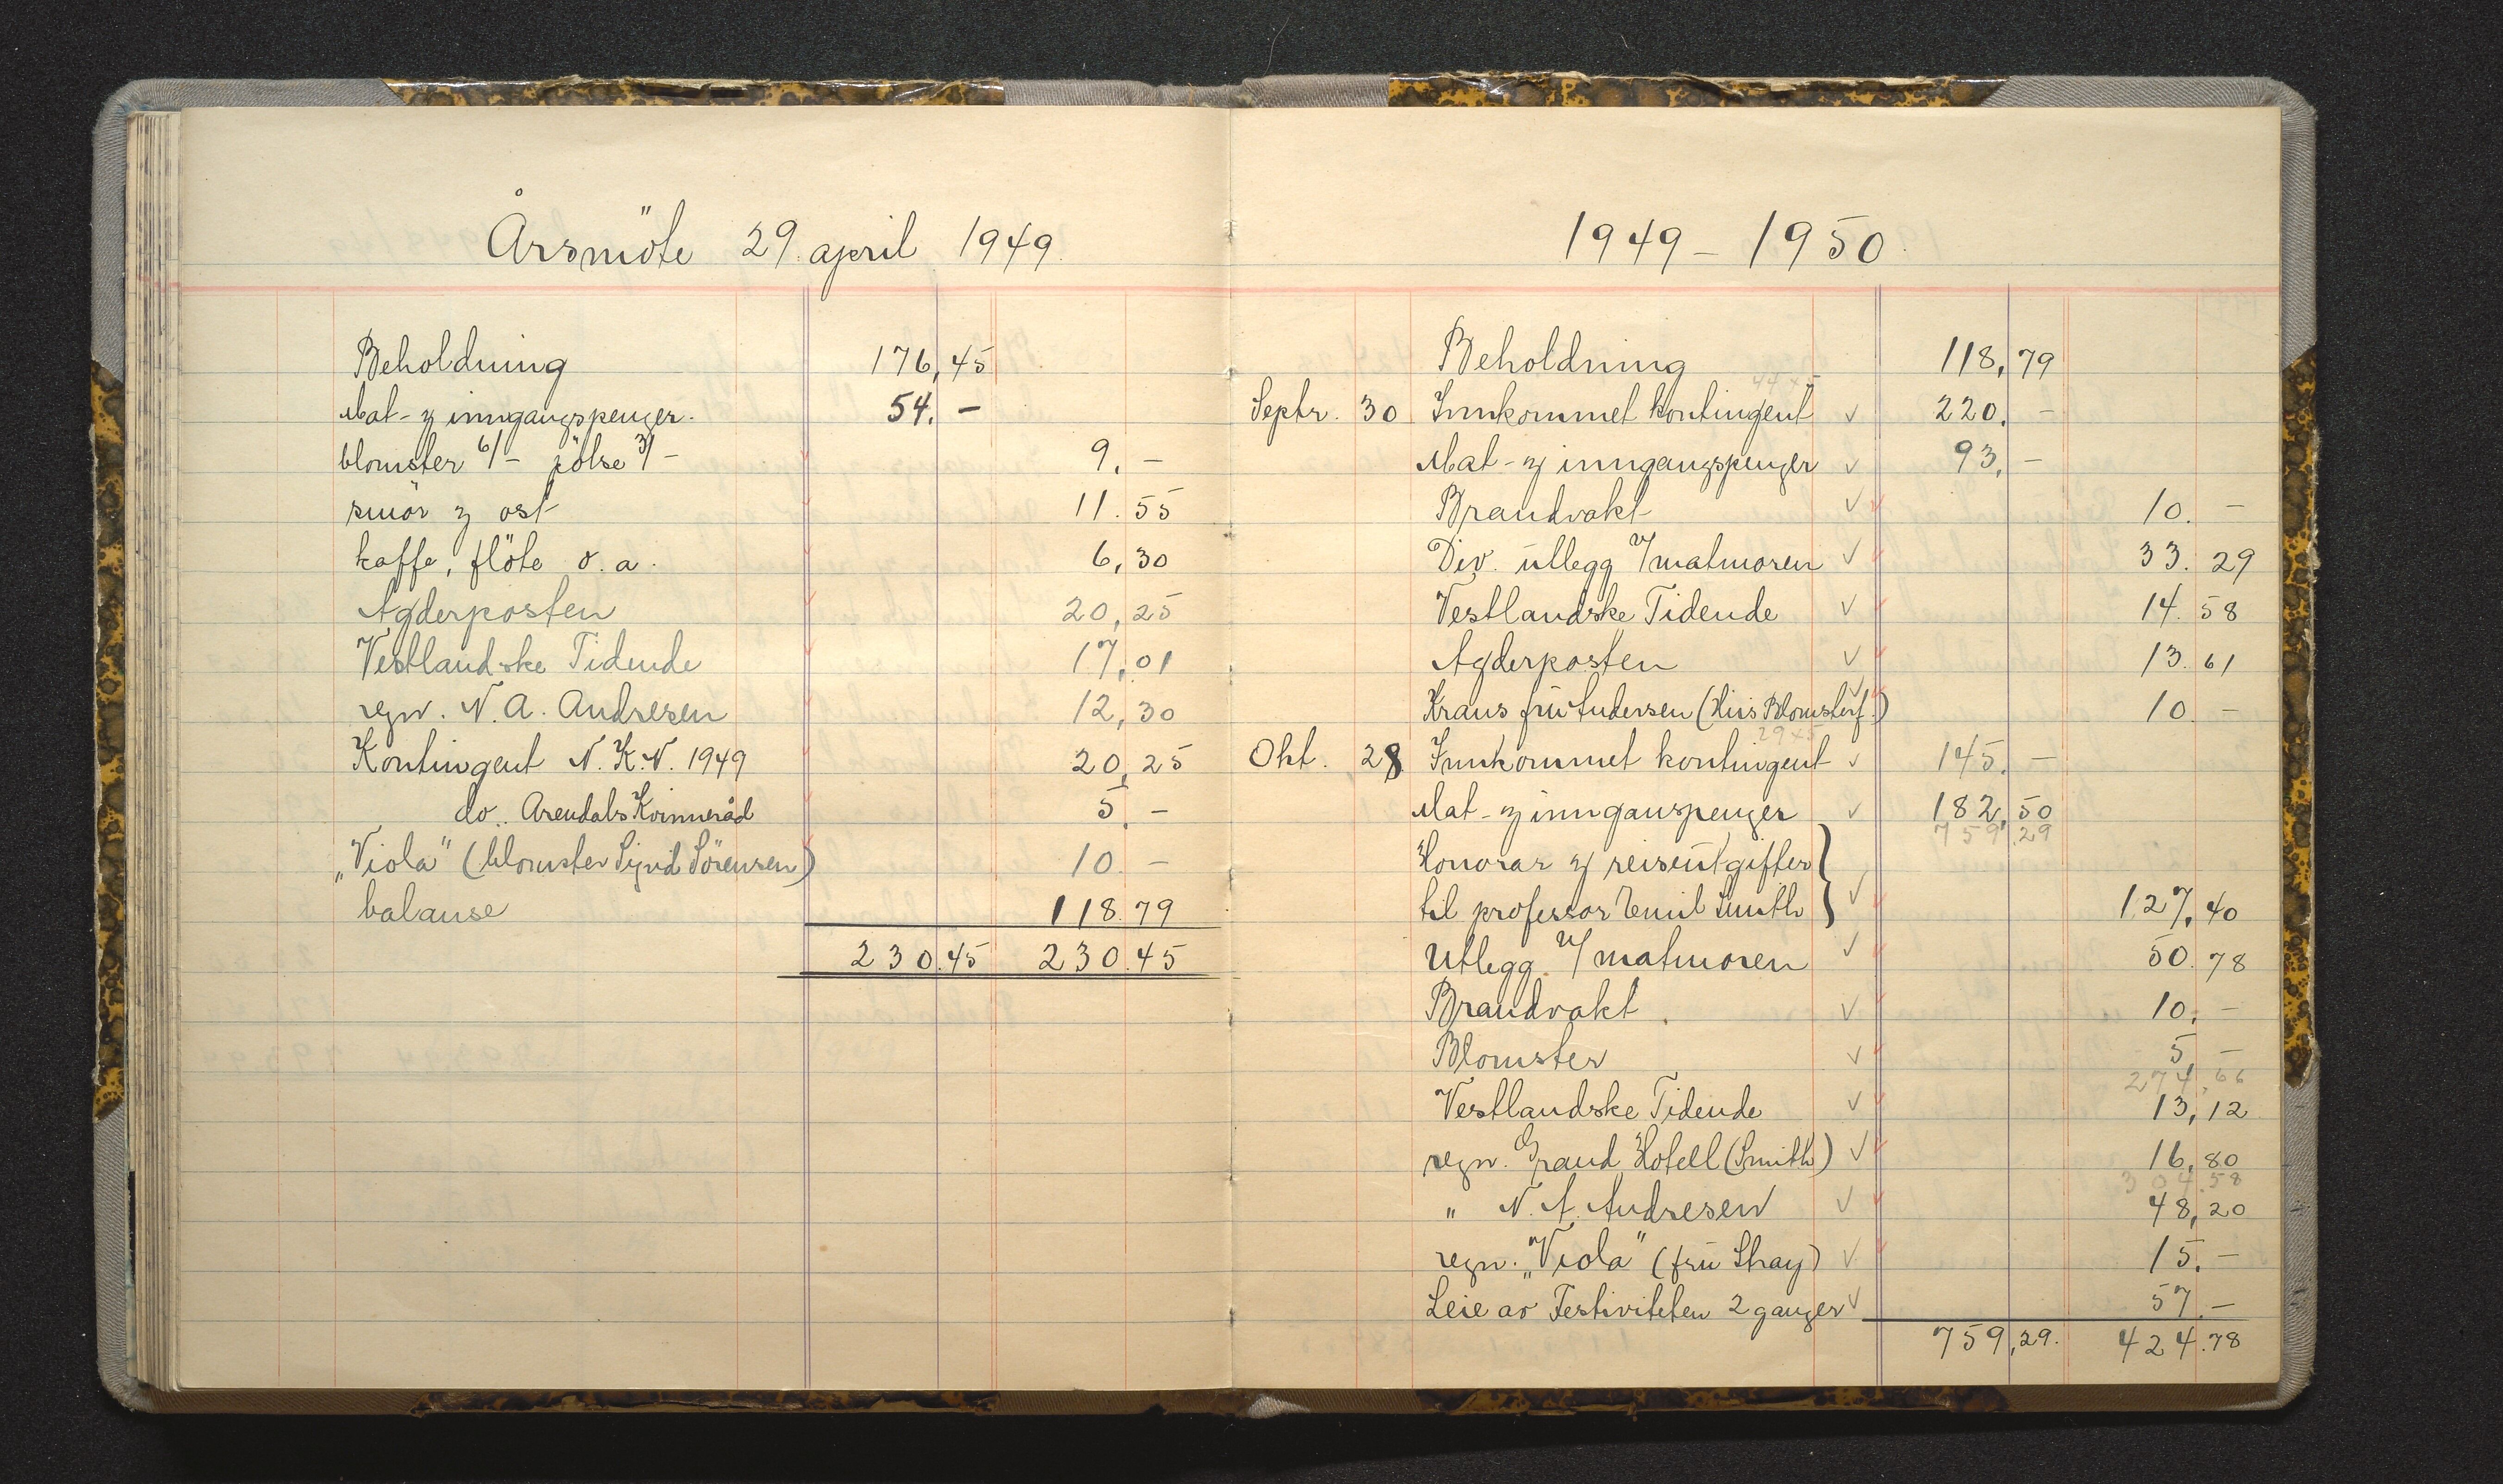 Årsmöte 29. april 1949.
Beholdning 176,45
Mat- og inngangspenger. 54. -
blomster 6/- pölse 3/- 9, -
smör og ost 11.55
kaffe, flöte o. a. 6,30
Agderposten 20,25
Vestlandske Tidende 17,01
regn. N. A. Andresen 12,30
Kontingent N. K. N. 1949 20,25
do. Arendals Kvinneråd 5, -
„Viola" (blomster Sigrid Sörensen) 10. -
balanse 118.79
230.45 230.45
1949 - 1950.
Beholdning 118,79
44 x 5
Septr. 30 Innkommet kontingent ✓ 220. -
Mat- og inngangspenger ✓ 93, -
Brandvakt ✓ 10. -
Div. utlegg v/matmoren ✓ 33.29
Vestlandske Tidende ✓ 14.58
Agderposten ✓ 13.61
Krans fru Andersen (His Blomsterf.) ✓ 10. -
29 x 5
Okt. 28 Innkommet kontingent ✓ 145. -
Mat- og inngangspenger ✓ 182,50
759,29
Honorar og reiseutgifter
til professor Emil Smith ✓ 127,40
Utlegg v/matmoren ✓ 50.78
Brandvakt ✓ 10, -
Blomster ✓ 5, -
274.66
Vestlandske Tidende ✓ 13,12
regn. Grand Hotell (Smith) ✓ 16,80
304.58
" N. A. Andresen ✓ 48,20
regn. „Viola" (fru Skay) ✓ 15. -
Leie av Festiviteten 2 ganger ✓ 57. -
759,29. 424.78